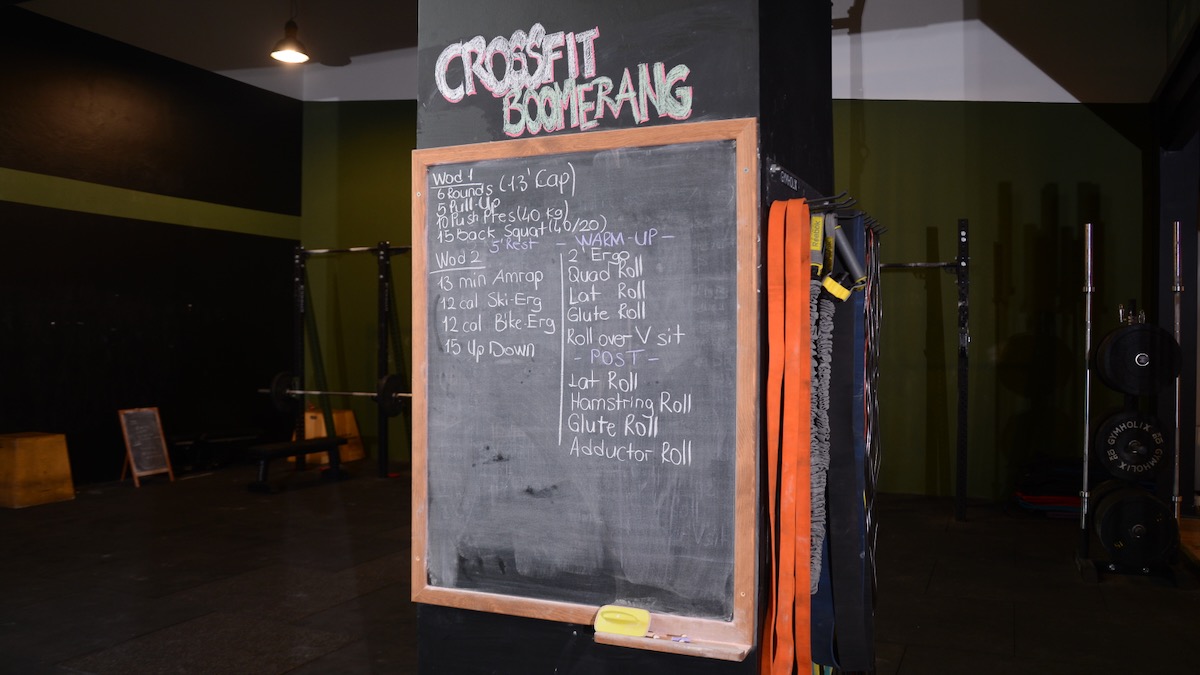 CROSSFIT
BOOMERANG
Wod 1
6 Rounds (13' Cap)
5 Pull-Up
10 Push Pres (40 kg)
15 Back Squat (40/20)
5' Rest
Wod 2
13 min Amrap
12 cal Ski-Erg
12 cal Bike-Erg
15 Up Down
- WARM-UP -
2' Ergo
Quad Roll
Lat Roll
Glute Roll
Roll over V sit
- POST -
Lat Roll
Hamstring Roll
Glute Roll
Adductor Roll
GYMHOLIX